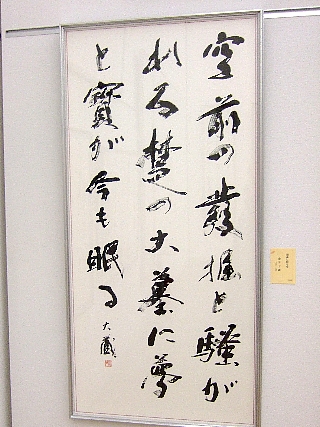 空前の發掘と騒が
れる楚の大墓に夢
と寳が今も眠る
大藏